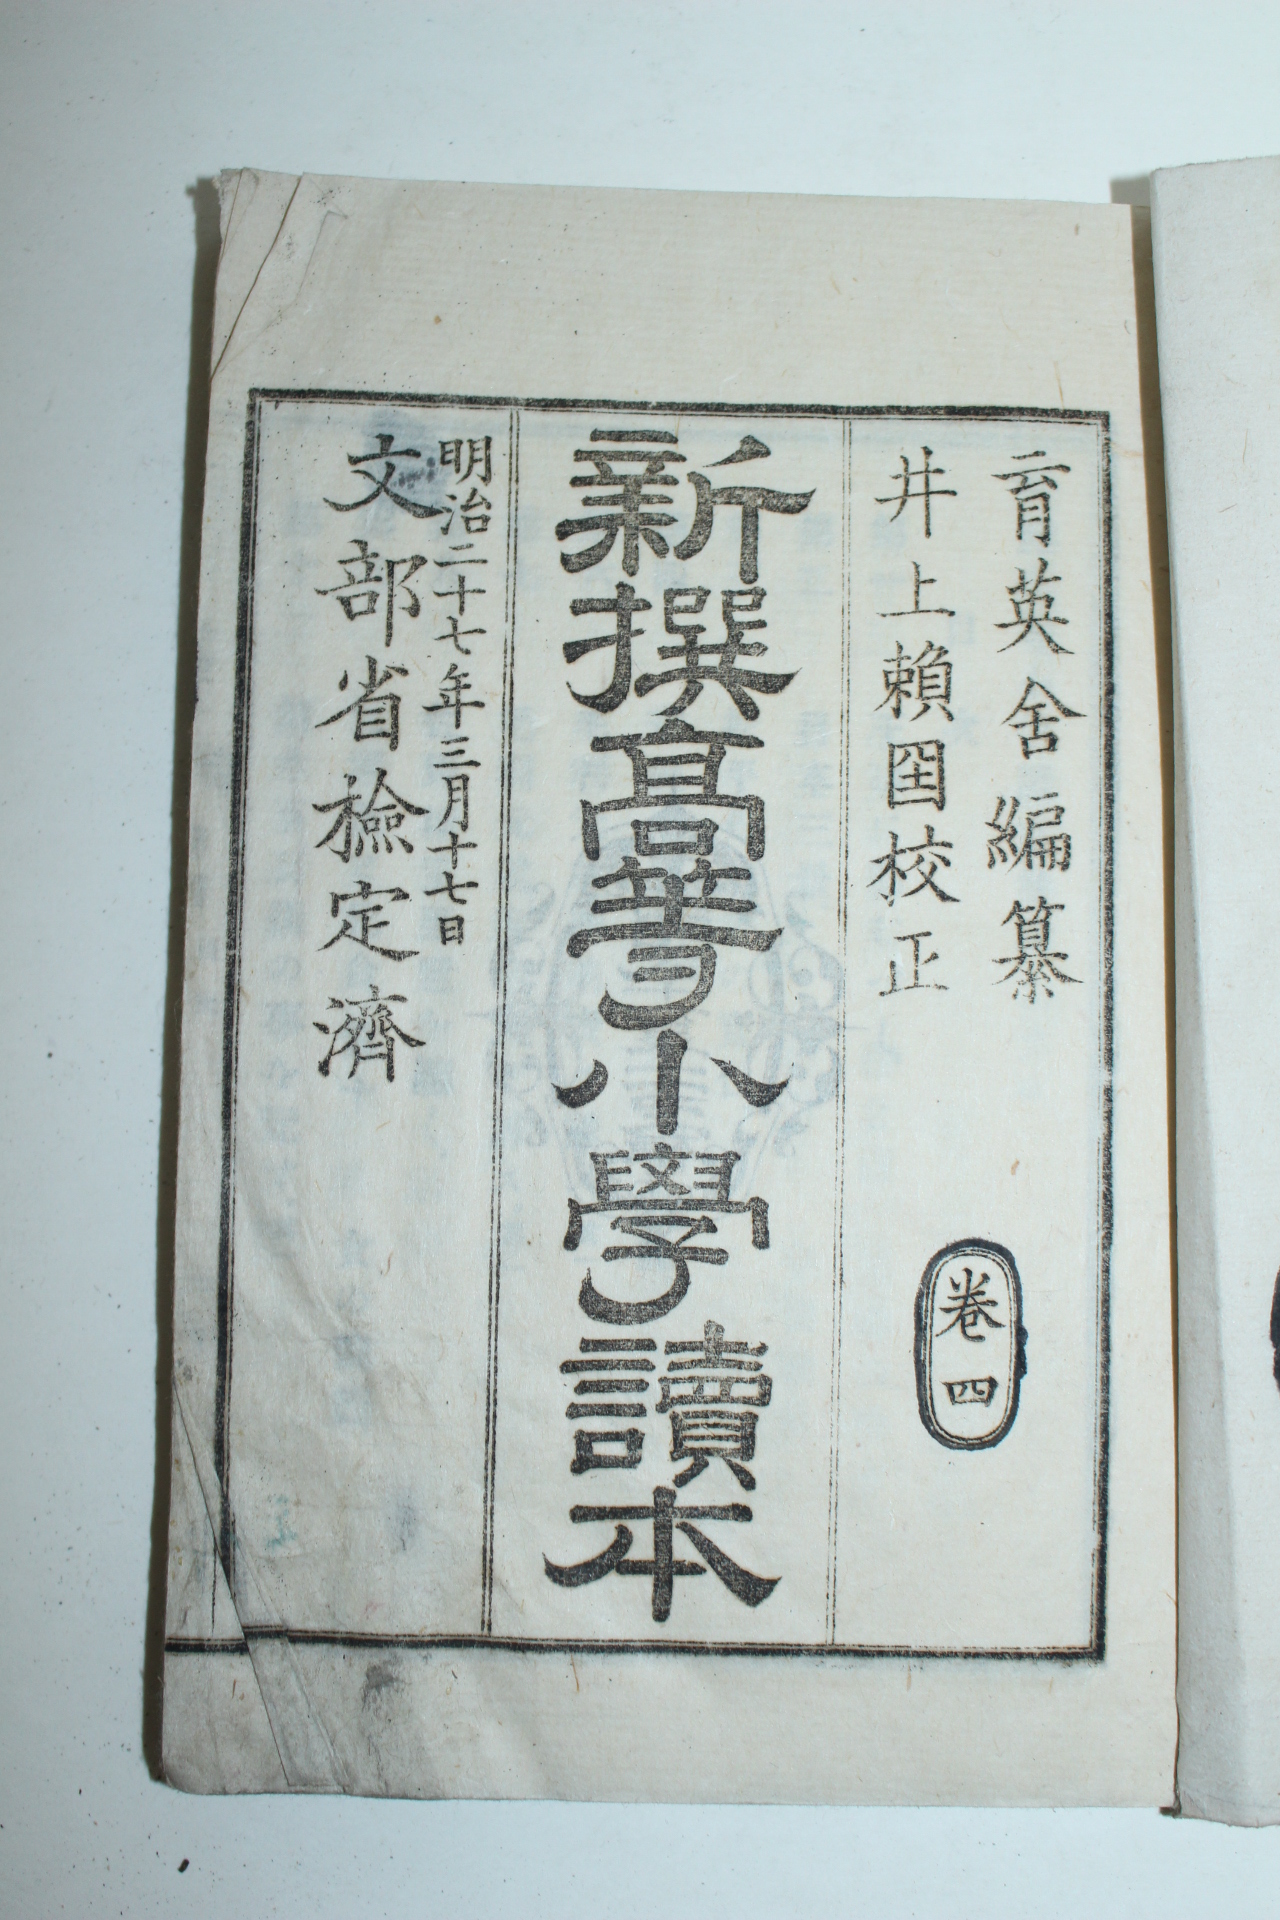 育英舍編纂
井上賴囶校正
卷四
新撰高等小學讀本
明治二十七年三月十七日
文部省檢定濟